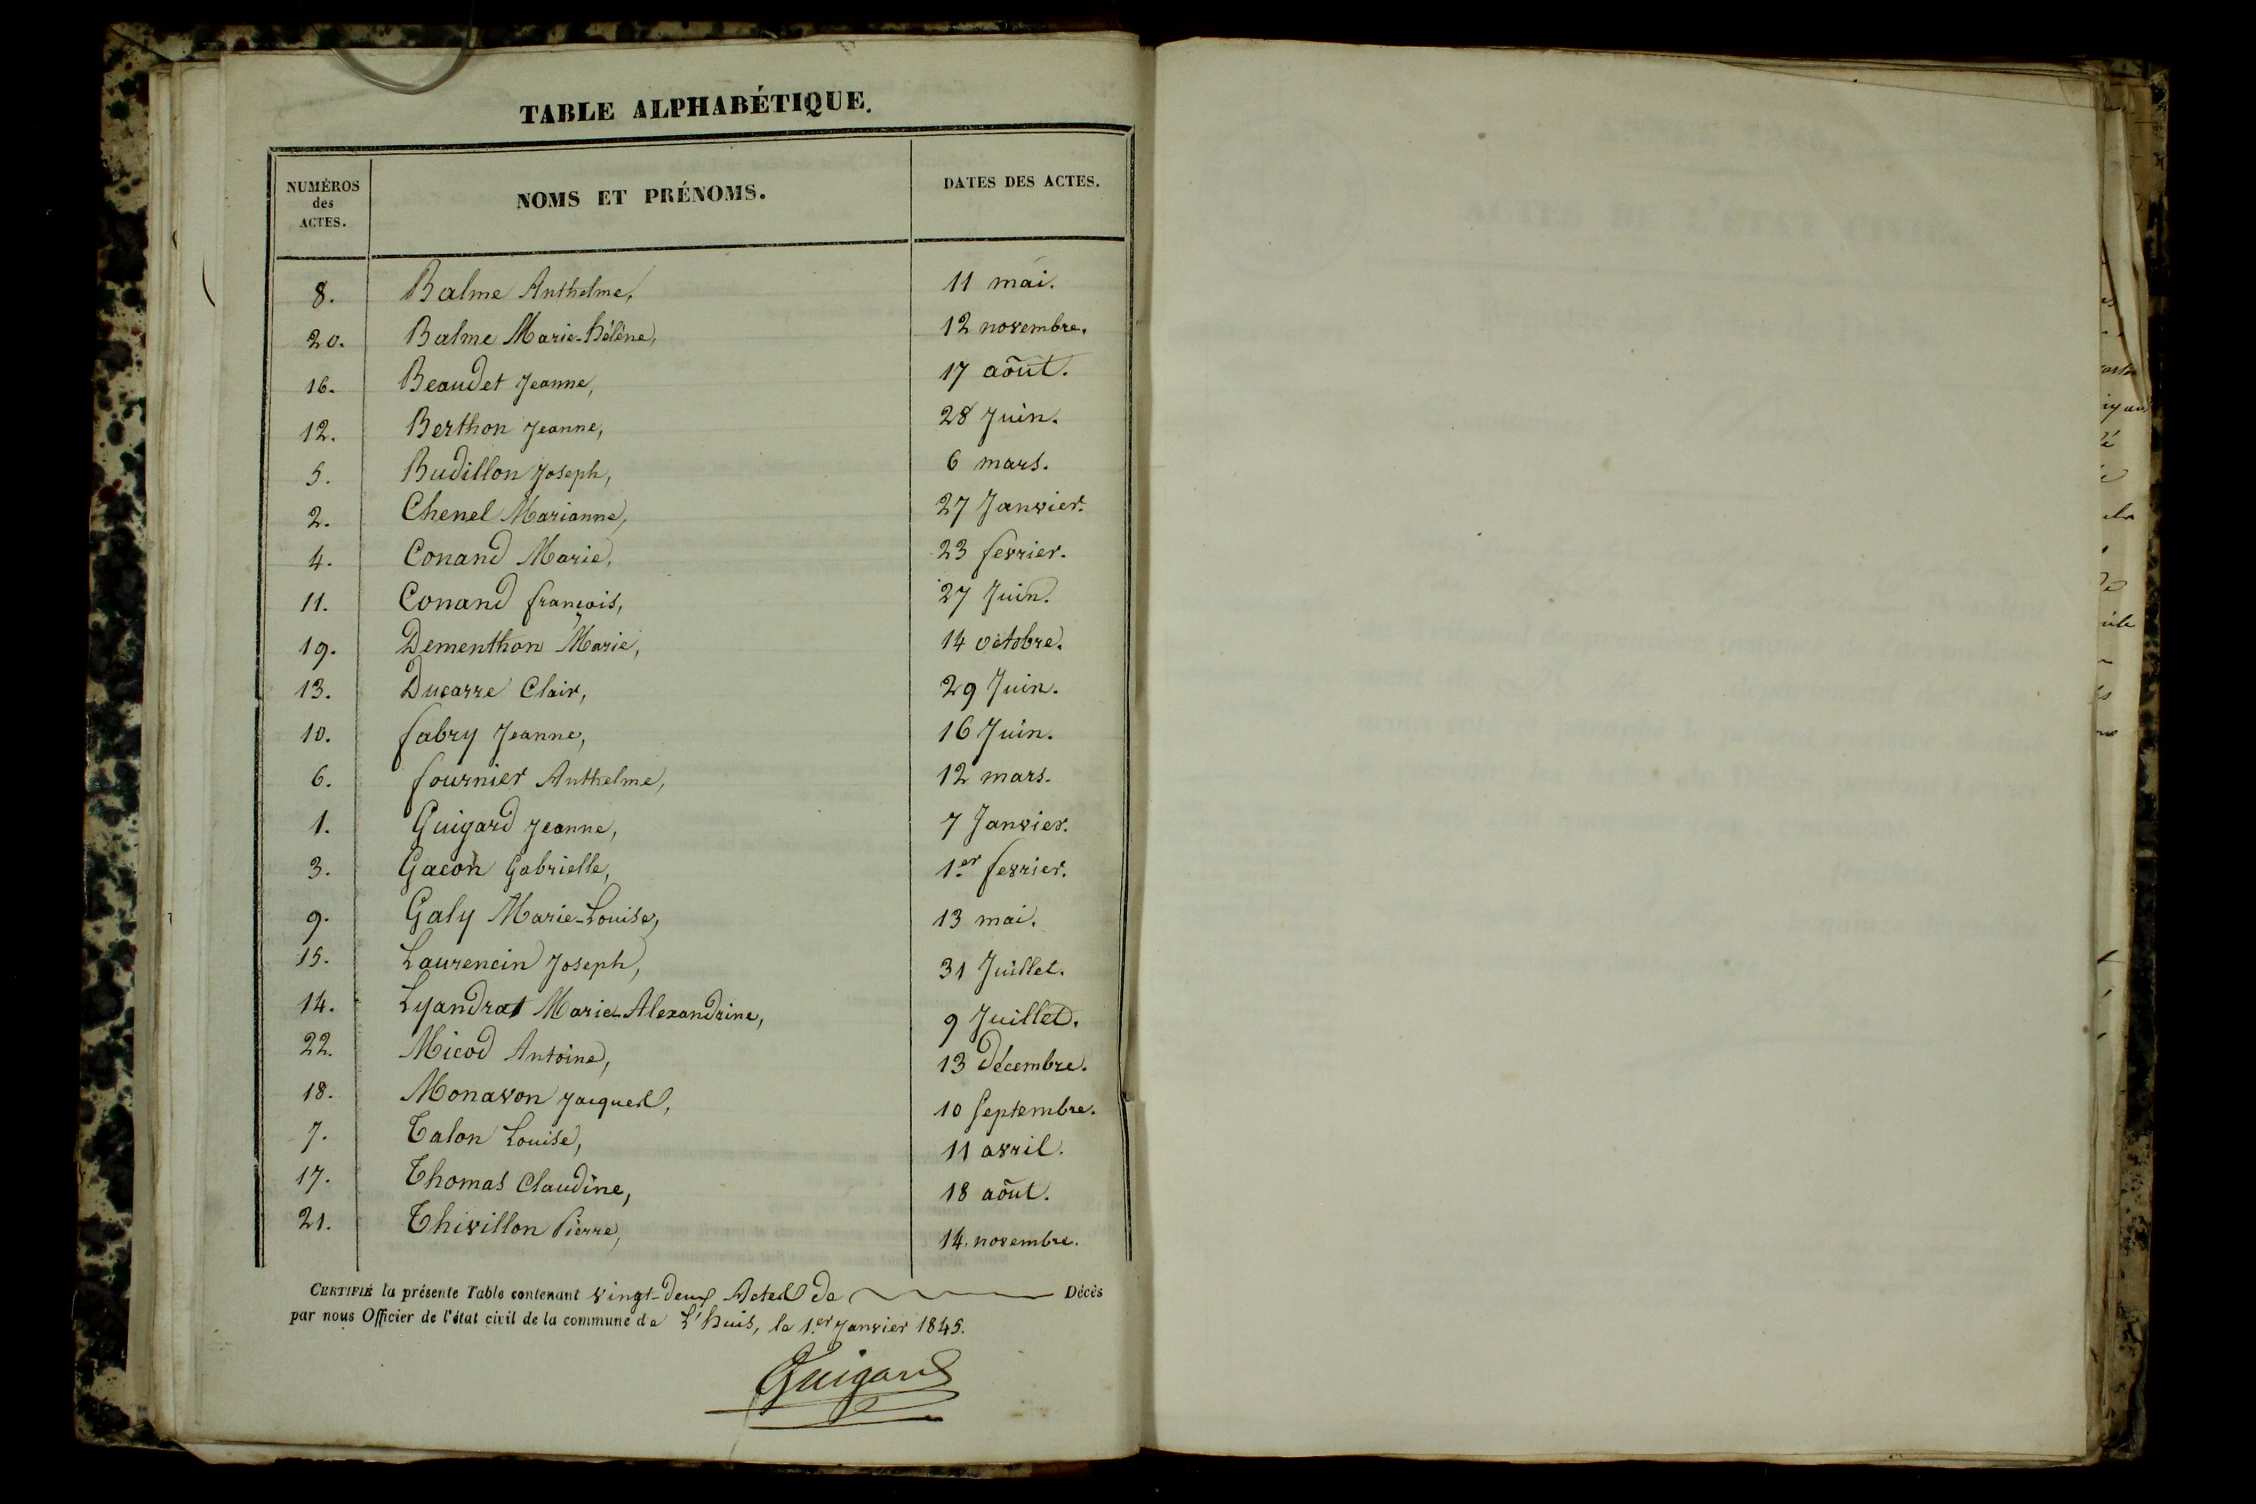 TABLE ALPHABÉTIQUE.
NUMÉROS des ACTES. NOMS ET PRÉNOMS. DATES DES ACTES.
8. Balme Anthelme, 11 mai.
20. Balme Marie-hélène, 12 novembre.
16. Beaudet Jeanne, 17 août.
12. Berthon Jeanne, 28 Juin.
5. Budillon Joseph, 6 mars.
2. Chenel Marianne, 27 Janvier.
4. Conand Marie, 23 fevrier.
11. Conand françois, 27 Juin.
19. Dementhon Marie, 14 octobre.
13. Ducarre Clair, 29 Juin.
10. fabry Jeanne, 16 Juin.
6. fournier Anthelme, 12 mars.
1. Guigard Jeanne, 7 Janvier.
3. Gacon Gabrielle, 1.er fevrier.
9. Galy Marie-Louise, 13 mai.
15. Laurencin Joseph, 31 Juillet.
14. Lyandrat Marie-Alexandrine, 9 Juillet.
22. Micod Antoine, 13 Décembre.
18. Monavon Jacques, 10 Septembre.
7. Talon Louise, 11 avril.
17. Thomas Claudine, 18 août.
21. Thivillon Pierre, 14. novembre.
CERTIFIÉ la présente Table contenant vingt-deux Actes de Décès
par nous Officier de l'état civil de la commune de L'huis, le 1.er Janvier 1845.
Guigard